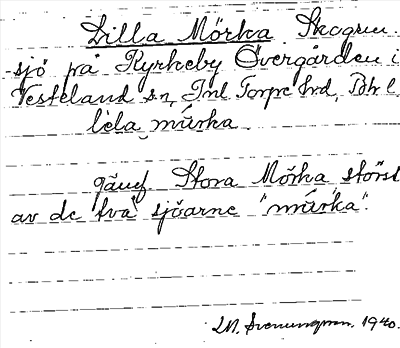 Lilla Mörka Skogsn.
sjö på Kyrkeby Övergården i
Vesteland sn, Inl Torpe hrd, Bhl
lela mūrka.
jämf Stora Mörka störst
av de två sjöarne "mūrka".
1940.